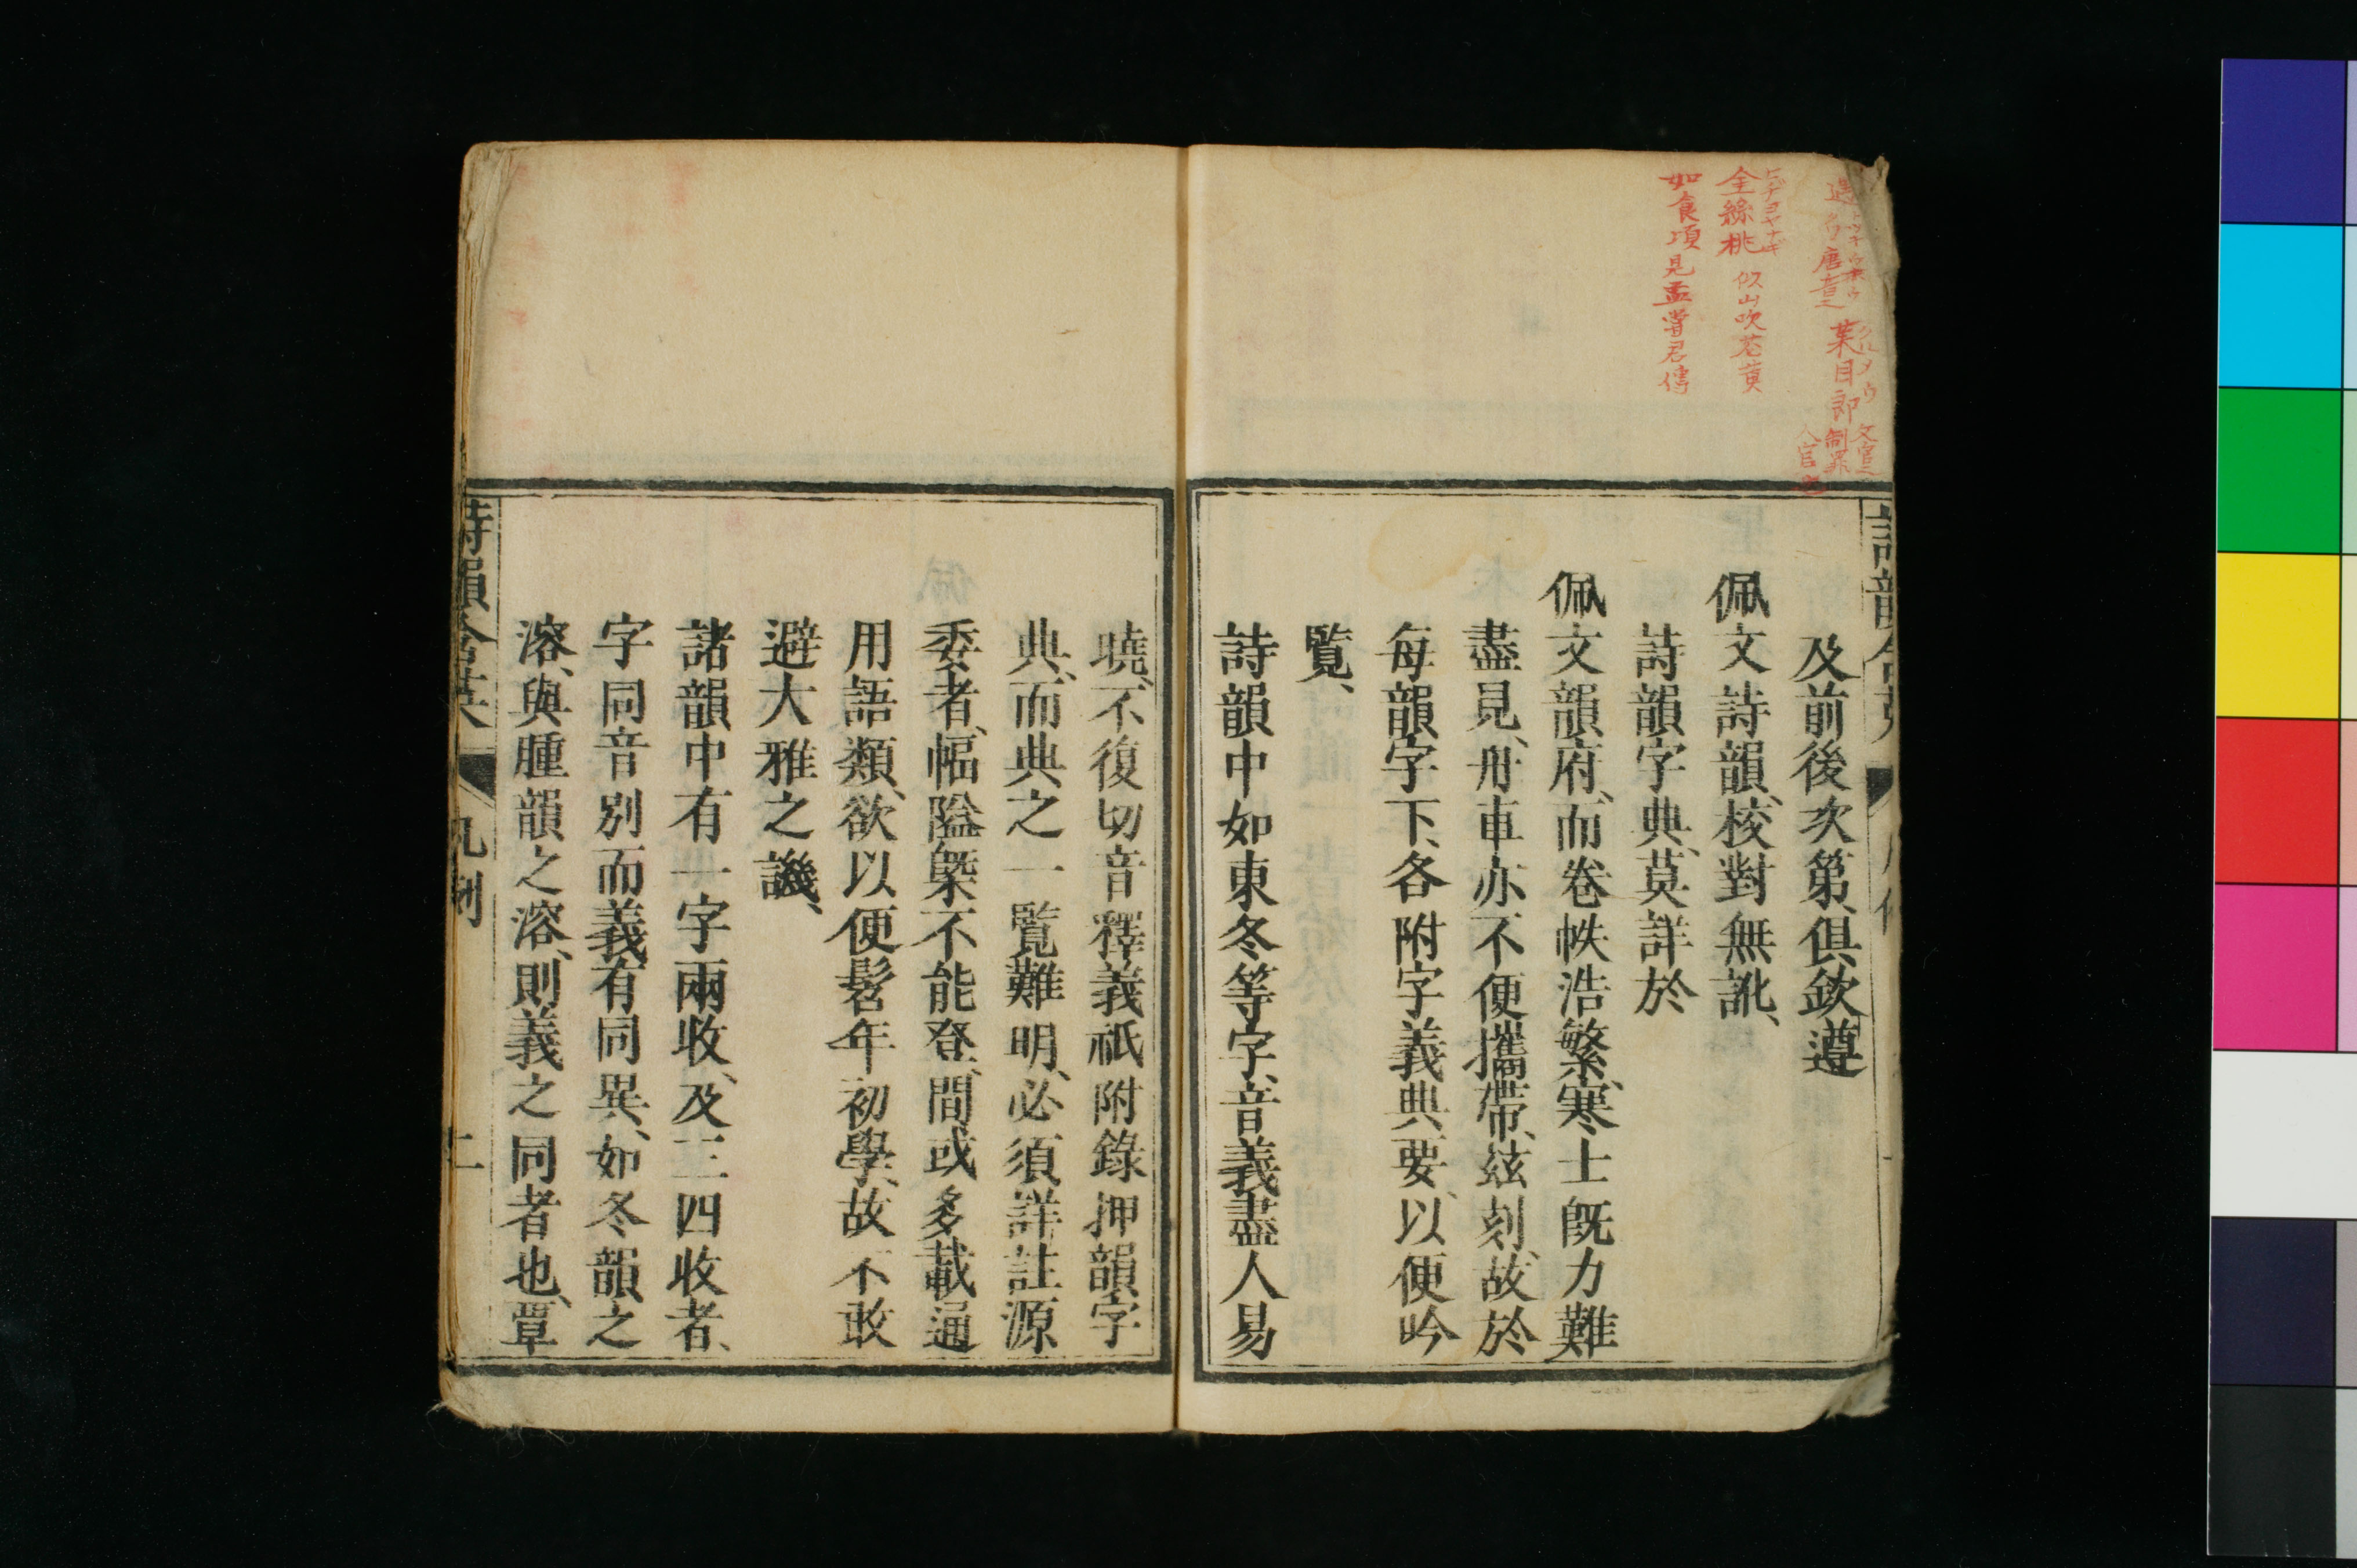 及前後次第、俱欽遵
佩文詩韻、校對無訛、
詩韻字典、莫詳於
佩文韻府、而卷帙浩繁、寒士旣力難
盡見、舟車亦不便攜帶、玆刻、故於
每韻字下、各附字義典要、以便吟
覽、
詩韻中如東冬等字、音義盡人易
曉、不復切音釋義、祇附錄押韻字
典、而典之一覽難明、必須詳註源
委者、幅隘槩不能登、間或多載通
用語類、欲以便髫年初學、故不敢
避大雅之譏、
諸韻中有一字兩收、及三四收者、
字同音別而義有同異、如冬韻之
溶、與腫韻之溶、則義之同者也、覃
詩韻含英
凡例
二
金絲桃
似山吹花黄
如食項見孟嘗君傳